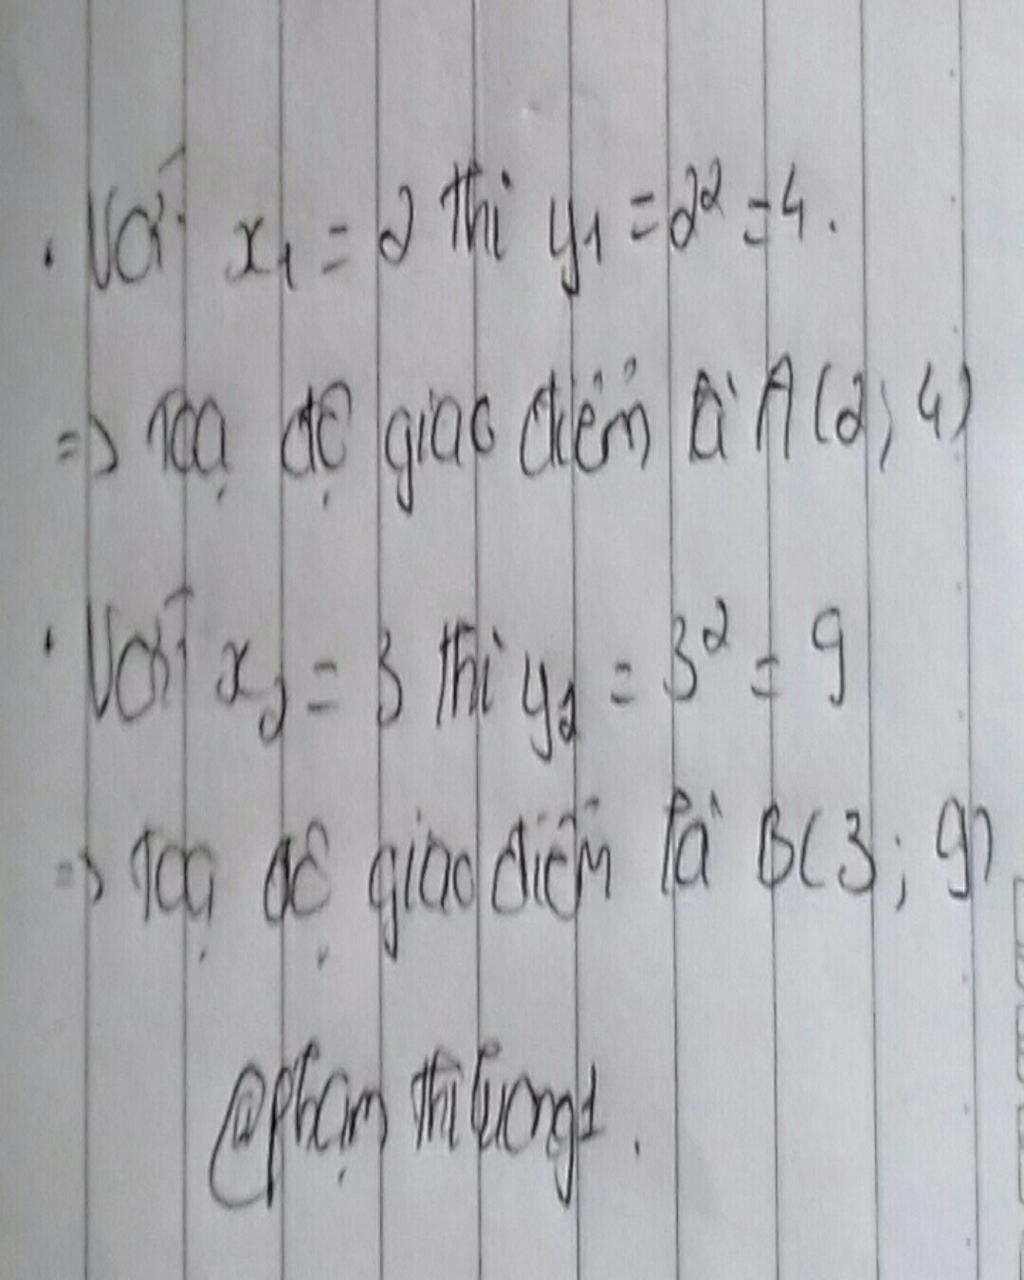 . Với x₁ = 2 thì y₁ = 2² = 4.
=> Toạ độ giao điểm là A(2; 4)
. Với x₂ = 3 thì y₂ = 3² = 9
=> Toạ độ giao điểm là B(3; 9)
@phạm thilương1.